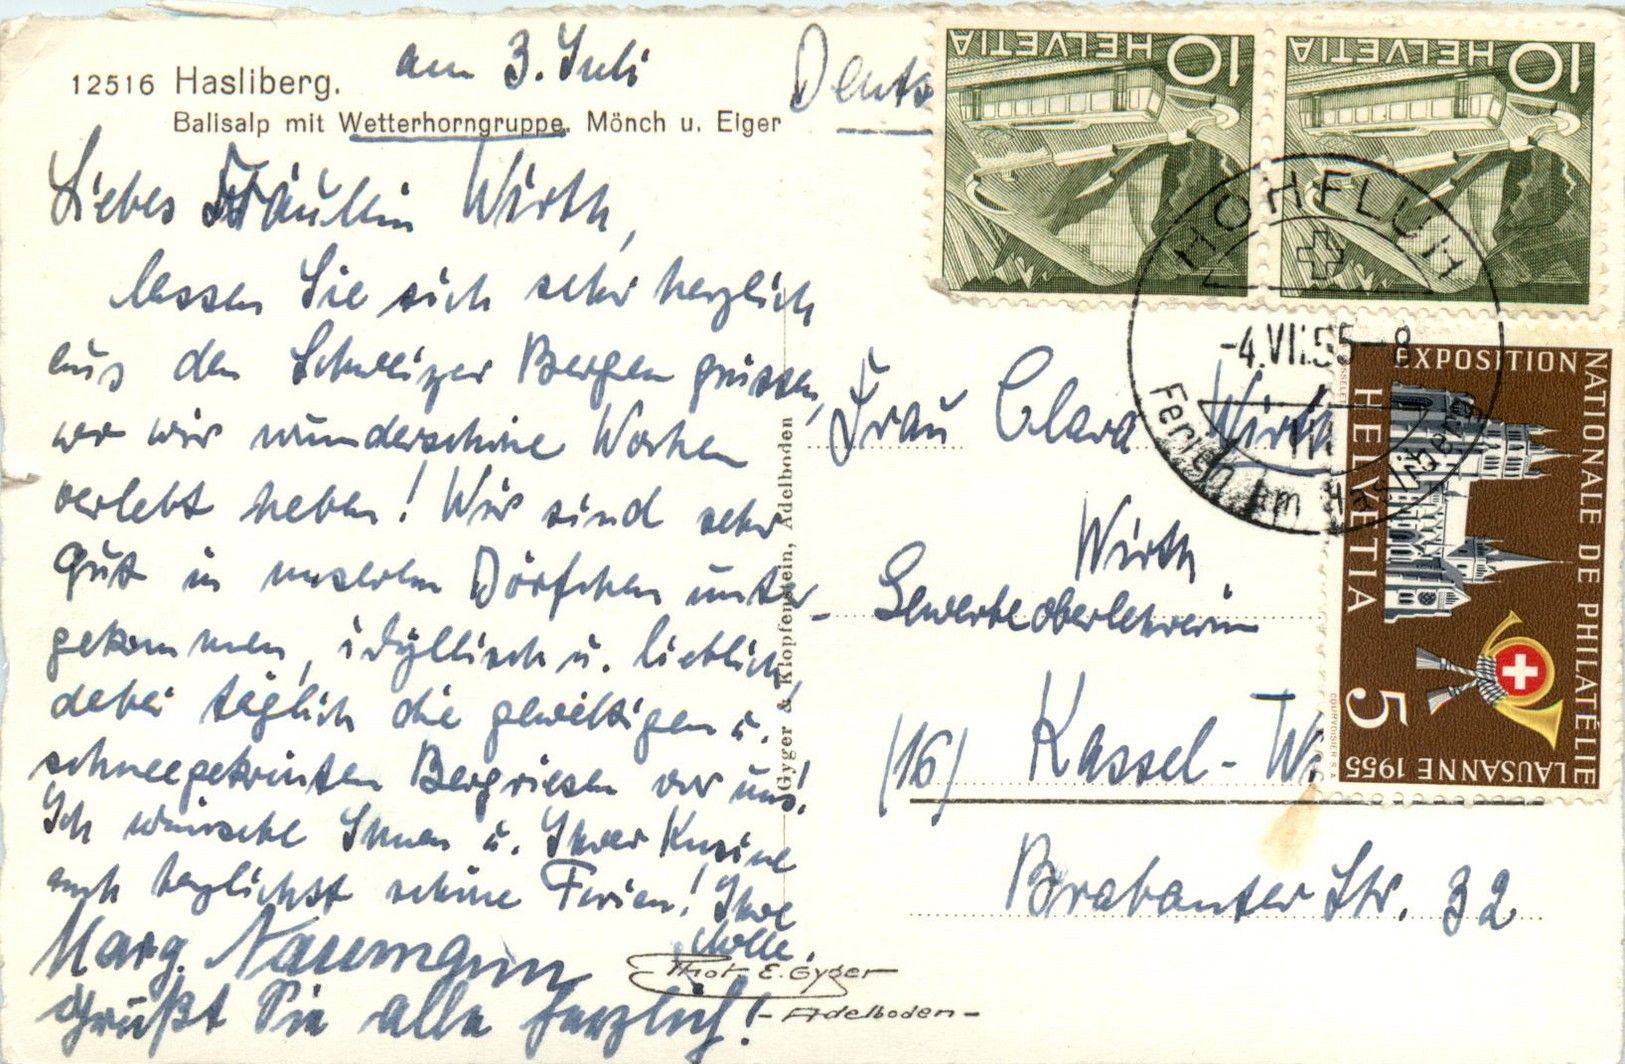 12516 Hasliberg. am 3. Juli
Balisalp mit Wetterhorngruppe, Mönch u. Eiger
Liebes Fräulein Wirth,
lassen Sie sich sehr herzlich
aus den Schweizer Bergen grüssen,
wo wir wunderschöne Wochen
verlebt haben! Wir sind sehr
gut in unserem Dörfchen unter-
gekommen, idyllisch u. lieblich,
dabei täglich die gewaltigen u.
schneegekrönten Bergriesen vor uns!
Ich wünsche Ihnen u. Ihrer Kusine
auch herzlichst schöne Ferien! Ihre
Marg. Naumann
Grüßt Sie alle herzlich!
Gyger & Klopfenstein, Adelboden
Phot. E. Gyger
- Adelboden -
Deuts
Frau Clara Wirth
Wirth
Gewerbeoberlehrerin
(16) Kassel - W.
Brabanter Str. 32
10 HELVETIA
10 HELVETIA
HOHFLUH
-4.VII.55-8
Ferien am Hasliberg
EXPOSITION
NATIONALE DE PHILATÉLIE
LAUSANNE 1955
HELVETIA
5
COURVOISIER S.A.